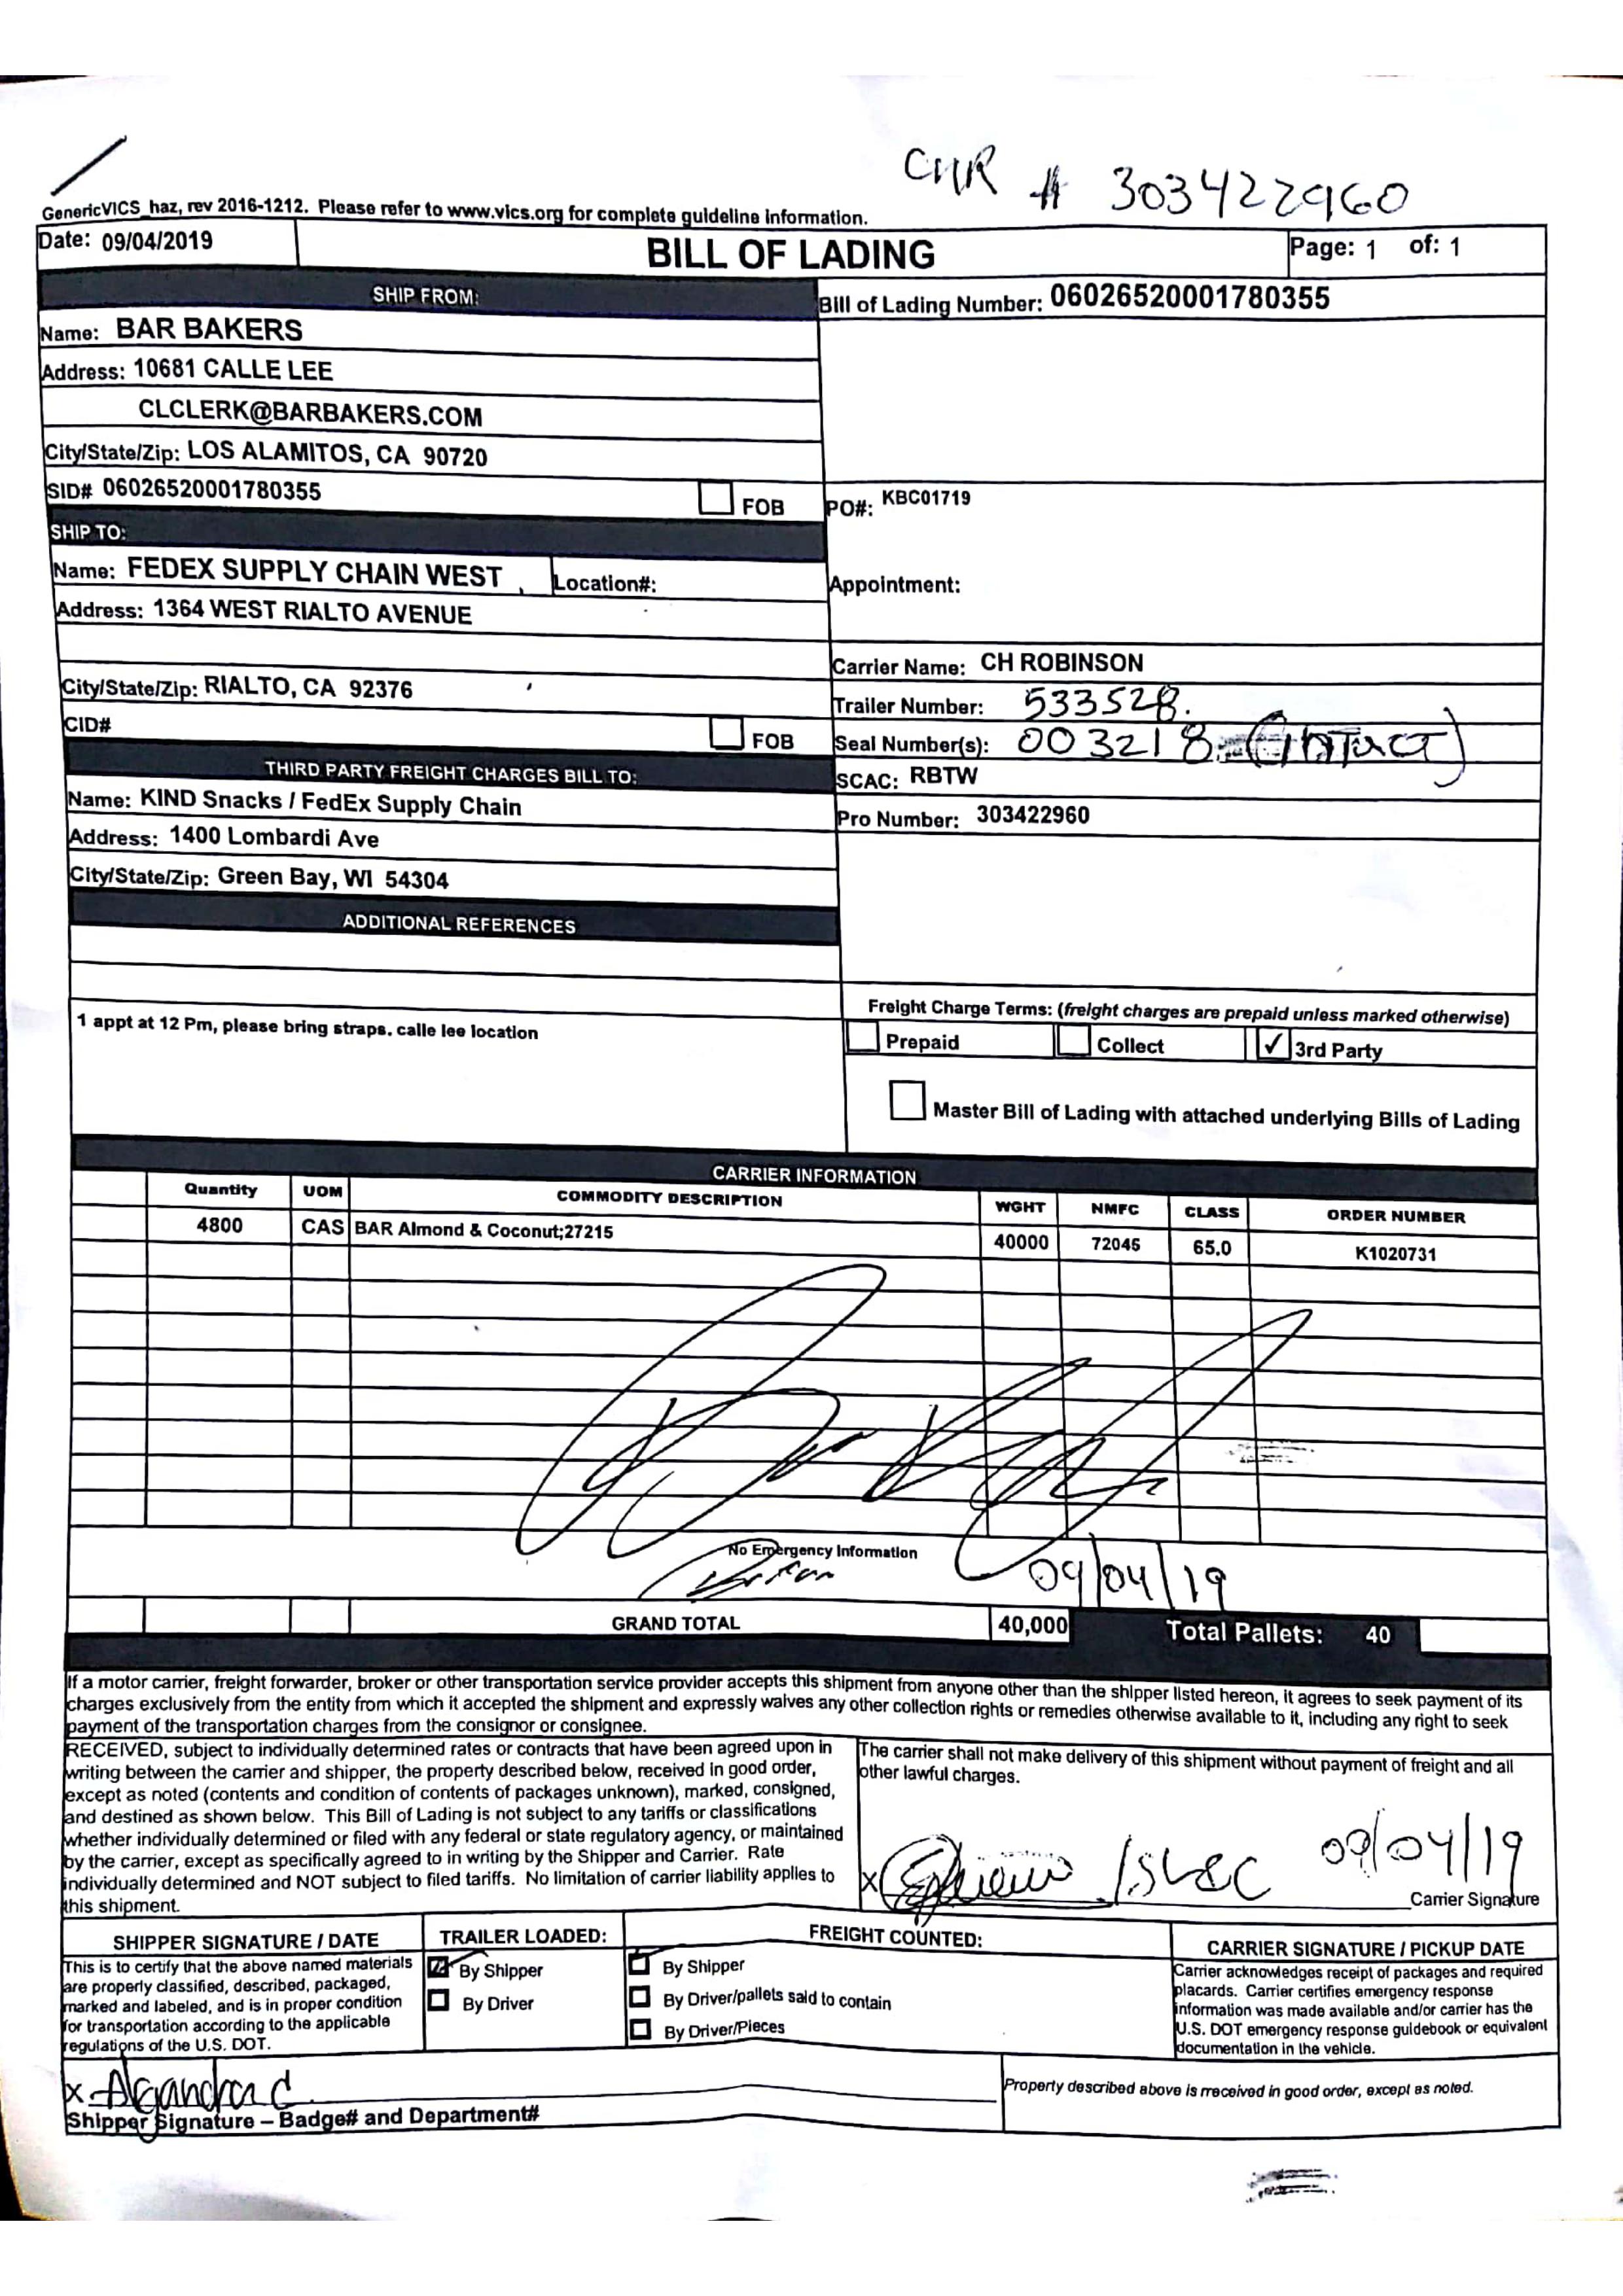 CHR # 303422960
GenericVICS_haz, rev 2016-1212. Please refer to www.vics.org for complete guideline information.
Date: 09/04/2019
BILL OF LADING
Page: 1 of: 1
SHIP FROM:
Bill of Lading Number: 06026520001780355
Name: BAR BAKERS
Address: 10681 CALLE LEE
CLCLERK@BARBAKERS.COM
City/State/Zip: LOS ALAMITOS, CA 90720
SID# 06026520001780355
FOB
PO#: KBC01719
SHIP TO:
Name: FEDEX SUPPLY CHAIN WEST
Location#:
Appointment:
Address: 1364 WEST RIALTO AVENUE
Carrier Name: CH ROBINSON
City/State/Zip: RIALTO, CA 92376
Trailer Number: 533528.
CID#
FOB
Seal Number(s): 003218 (Intact)
THIRD PARTY FREIGHT CHARGES BILL TO:
SCAC: RBTW
Name: KIND Snacks / FedEx Supply Chain
Pro Number: 303422960
Address: 1400 Lombardi Ave
City/State/Zip: Green Bay, WI 54304
ADDITIONAL REFERENCES
1 appt at 12 Pm, please bring straps. calle lee location
Freight Charge Terms: (freight charges are prepaid unless marked otherwise)
Prepaid
Collect
✓ 3rd Party
Master Bill of Lading with attached underlying Bills of Lading
CARRIER INFORMATION
Quantity UOM COMMODITY DESCRIPTION WGHT NMFC CLASS ORDER NUMBER
4800 CAS BAR Almond & Coconut;27215 40000 72045 65.0 K1020731
No Emergency Information
09/04/19
GRAND TOTAL 40,000 Total Pallets: 40
If a motor carrier, freight forwarder, broker or other transportation service provider accepts this shipment from anyone other than the shipper listed hereon, it agrees to seek payment of its
charges exclusively from the entity from which it accepted the shipment and expressly waives any other collection rights or remedies otherwise available to it, including any right to seek
payment of the transportation charges from the consignor or consignee.
RECEIVED, subject to individually determined rates or contracts that have been agreed upon in
writing between the carrier and shipper, the property described below, received in good order,
except as noted (contents and condition of contents of packages unknown), marked, consigned,
and destined as shown below. This Bill of Lading is not subject to any tariffs or classifications
whether individually determined or filed with any federal or state regulatory agency, or maintained
by the carrier, except as specifically agreed to in writing by the Shipper and Carrier. Rate
individually determined and NOT subject to filed tariffs. No limitation of carrier liability applies to
this shipment.
The carrier shall not make delivery of this shipment without payment of freight and all
other lawful charges.
X 09/04/19
Carrier Signature
SHIPPER SIGNATURE / DATE
This is to certify that the above named materials
are properly classified, described, packaged,
marked and labeled, and is in proper condition
for transportation according to the applicable
regulations of the U.S. DOT.
TRAILER LOADED:
By Shipper
By Driver
FREIGHT COUNTED:
By Shipper
By Driver/pallets said to contain
By Driver/Pieces
CARRIER SIGNATURE / PICKUP DATE
Carrier acknowledges receipt of packages and required
placards. Carrier certifies emergency response
information was made available and/or carrier has the
U.S. DOT emergency response guidebook or equivalent
documentation in the vehicle.
X
Shipper Signature – Badge# and Department#
Property described above is rreceived in good order, except as noted.